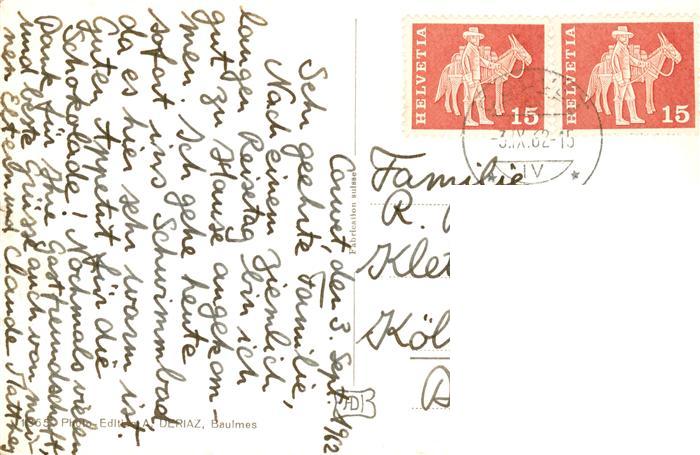 Couvet, den 3. Sept. 1962
Sehr geehrte Familie,
Nach einem ziemlich
langen Reisetag bin ich
gut zu Hause angekom-
men. Ich gehe heute
sofort ins Schwimmbad
da es hier sehr warm ist.
Guten Appetit für die
Schokolade! Nochmals vielen
Dank für Ihre Gastfreundschaft,
und beste Grüsse auch von mei-
nen Eltern. Claude
HELVETIA 15
HELVETIA 15
-3.IX.62-15
IV
Familie
R.
Kle
Köl
Fabrication suisse
11365 Photo-Edit. A. DERIAZ, Baulmes